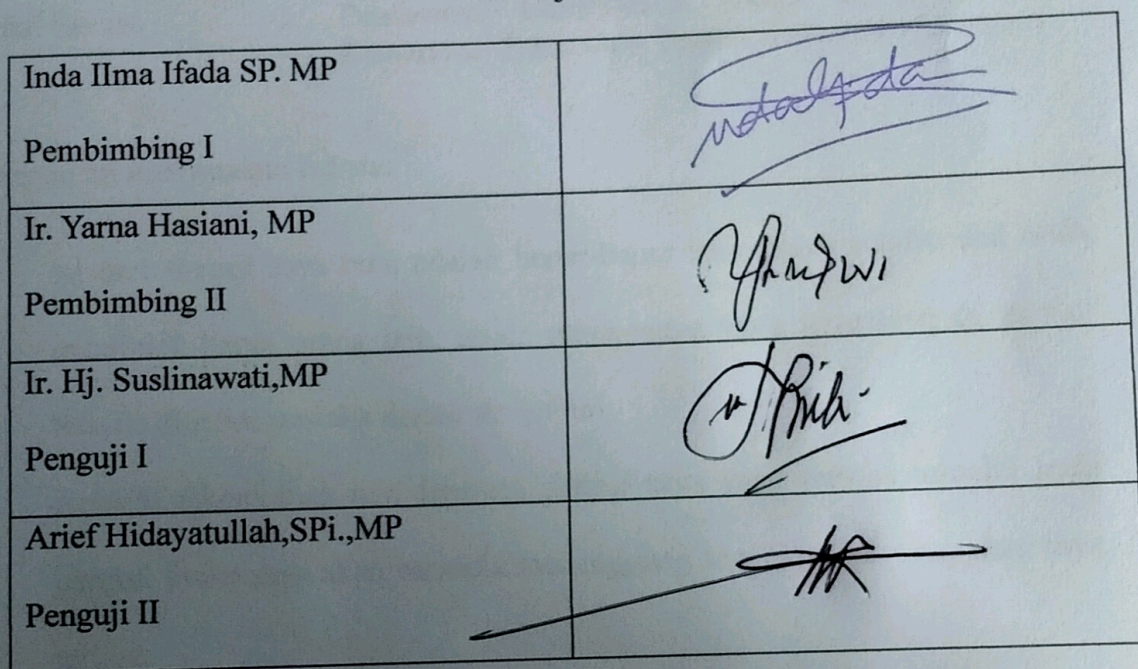 Inda IIma Ifada SP. MP
Pembimbing I
Ir. Yarna Hasiani, MP
Pembimbing II
Ir. Hj. Suslinawati,MP
Penguji I
Arief Hidayatullah,SPi.,MP
Penguji II